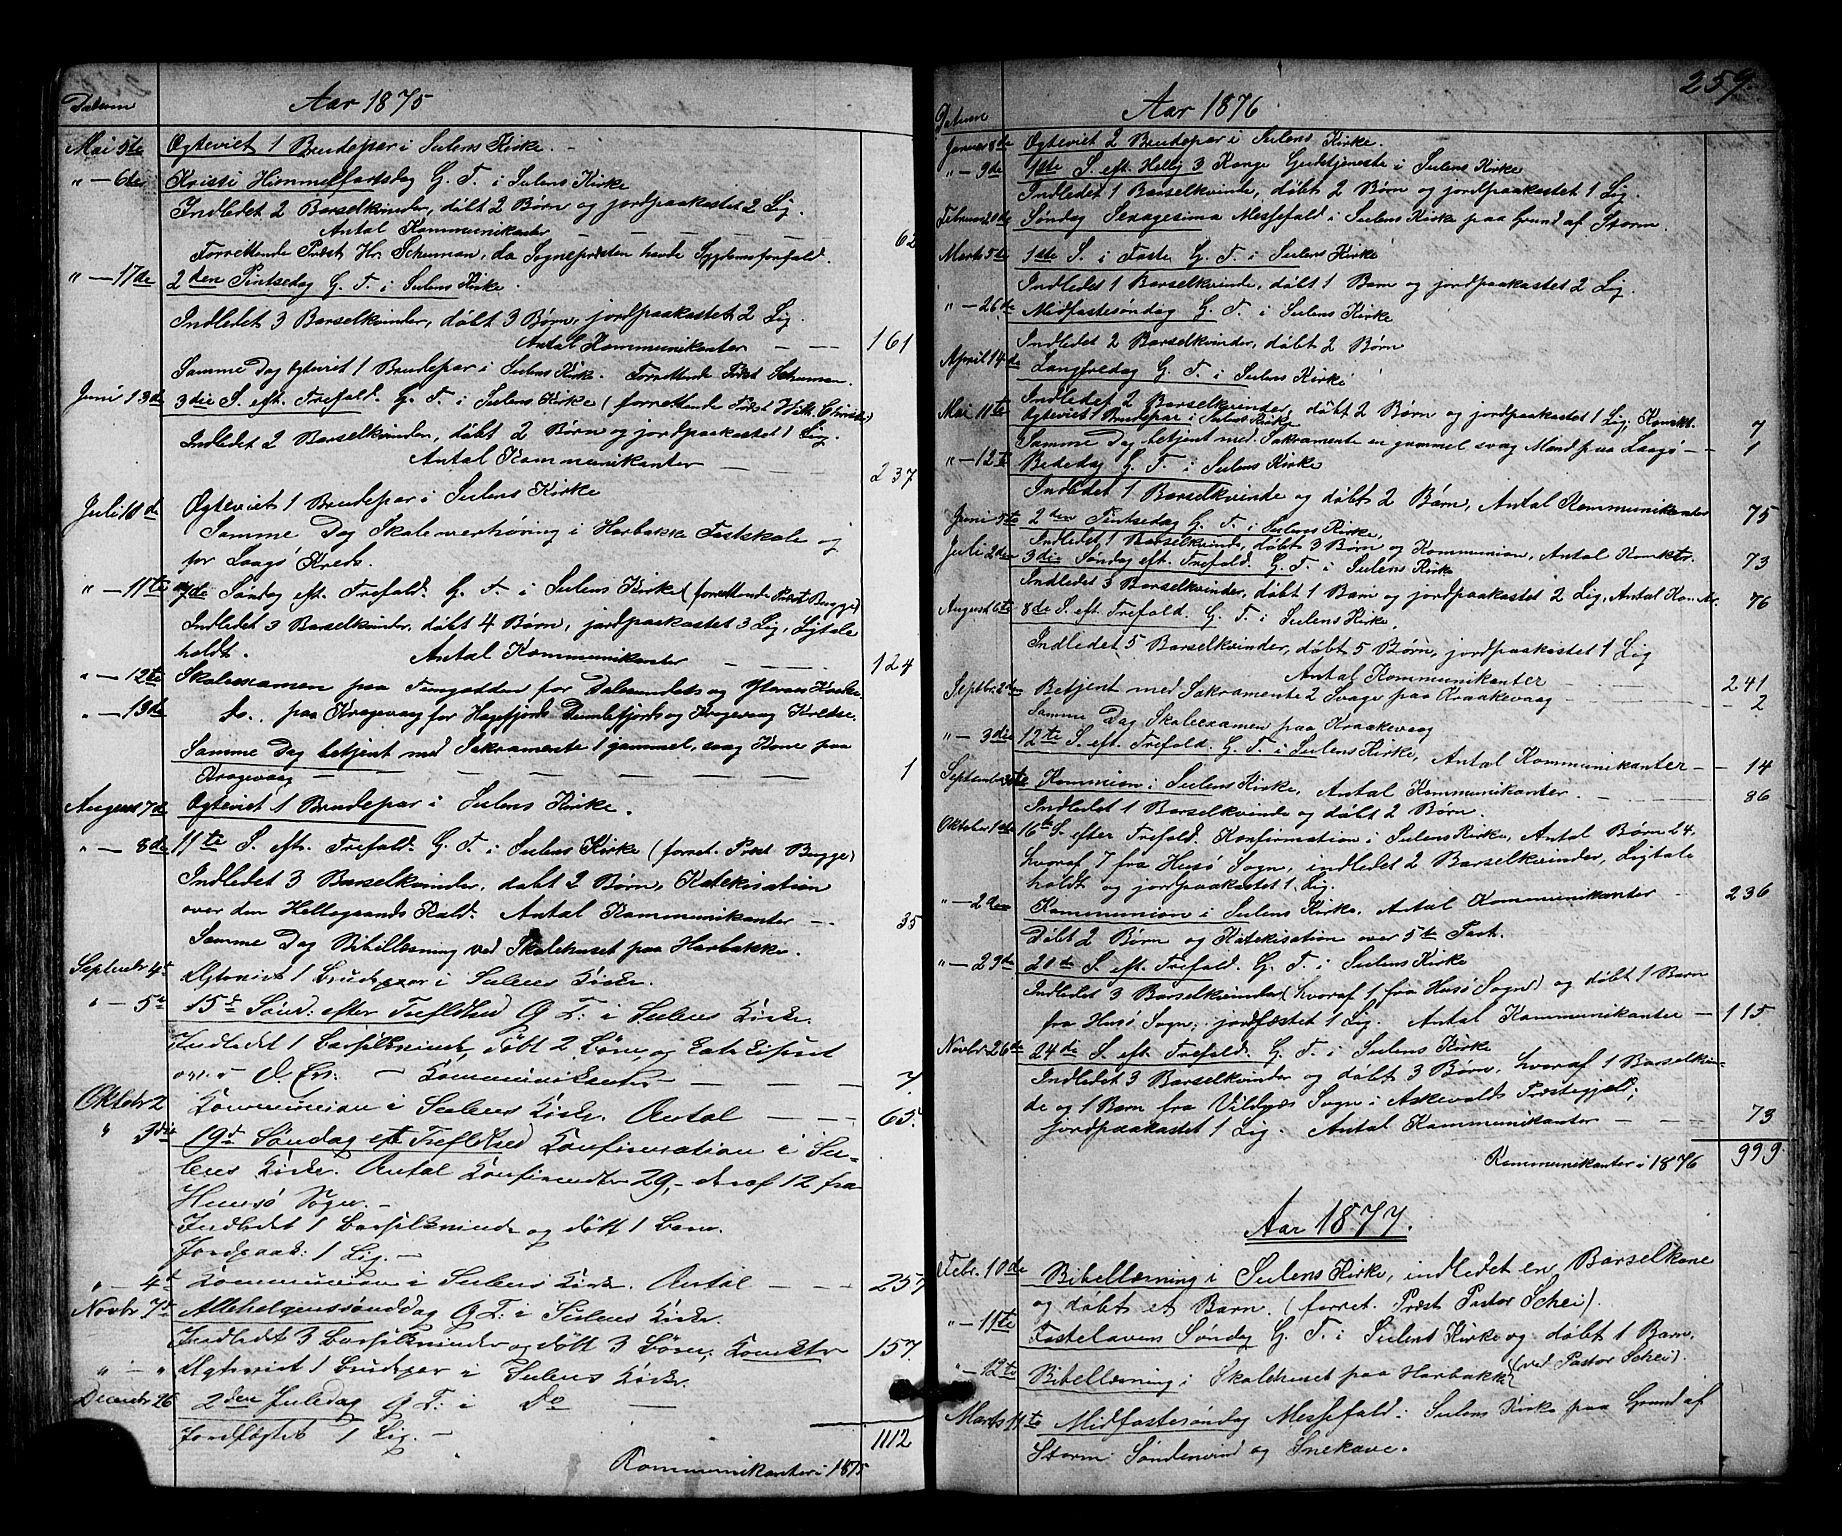 Datum
Aar 1875
Mai 5te Ægteviet 1 Brudepar i Sulens Kirke. -
" - 6te Kristi Himmelfartsdag G. T. i Sulens Kirke
Indledet 2 Barselkvinder, døbt 2 Børn og jordpaakastet 2 Lig.
Antal Kommunikanter - - - - 62
Forrettende Præst Hr. Schuman, da Sognepræsten havde Sygdomsforfald.
" - 17de 2den Pintsedag G. T. i Sulens Kirke.
Indledet 3 Barselkvinder, døbt 3 Børn, jordpaakastet 2 Lig.
Antal Kommunikanter - - - 161
Samme Dag Ægteviet 1 Brudepar i Sulens Kirke. Forrettende Præst Schuman.
Juni 13de 3die S. eft. Trefold. G. T. i Sulens Kirke (forrettende Præst
Indledet 2 Barselkvinder, døbt 2 Børn og jordpaakastet 1 Lig.
Antal Kommunikanter - - - 237
Juli 10de Ægteviet 1 Brudepar i Sulens Kirke
Samme Dag Skoleoverhøring i Harbakke Fastskole og
for Laagø Kreds.
" - 11te 7de Søndag eft. Trefold. G. T. i Sulens Kirke (forrettende Præst Bugge)
Indledet 3 Barselkvinder, døbt 4 Børn, jordpaakastet 3 Lig, Ligtale
holdt. Antal Kommunikanter - - - 124
" - 12te Skoleexamen paa for og Kredse
" - 13de do. paa Kragevaag for Hagefjords og Kragevaag Kredse.
Samme Dag betjent med Sakramente 1 gammel, svag Kone paa
Kragevaag - - - - - 1
August 7de Ægteviet 1 Brudepar i Sulens Kirke.
" - 8de 11te S. eft. Trefold. G. T. i Sulens Kirke (forret. Præst Bugge)
Indledet 3 Barselkvinder, døbt 2 Børn, Katekisation
over den Helligaands Kald. Antal Kommunikanter - - 35
Samme Dag Bibellæsning ved Skolehuset paa Harbakke.
Septembr 4de Ægteviet 1 Brudepar i Sulens Kirke.
" - 5te 15de Sønd: efter Treflthed G T: i Sulens Kirke.
Indledet 1 Barselkvinde, døbt 2 Børn og Katekiseret
- Kommunikanter - - - 7.
Oktobr 2 Kommunion i Sulens Kirke. Antal - - - 65.
" 3die 19de Søndag eft Treflthed Konfirmation i Su-
lens Kirke. Antal Konfirmander 29, - deraf 12 fra
Huusø Sogn. -
Indledet 1 Barselkvinde og døbt 1 Barn.
Jordpaak: 1 Lig. -
" - 4de Kommunion i Sulens Kirke. Antal - - - 257
Novbr 7de Allehelgenssønddag G T: i Sulens Kirke.
Indledet 3 Barselkvinder og døbt 3 Børn; Komktr 157.
" - " Ægteviet 1 Brudepar i Sulens Kirke.
Decembr 26 2den Juledag G T: i Do -
Jordfæstet 1 Lig. -
1112
Kommunikanter i 1875
259.
Datum
Aar 1876
Januar 8de Ægteviet 2 Brudepar i Sulens Kirke.
" - 9de 1ste S. eft. Hellig 3 Konge Gudstjeneste i Sulens Kirke
Indledet 1 Barselkvinde, døbt 2 Børn og jordpaakastet 1 Lig.
Februar 20de Søndag Sexagesima Messefald i Sulens Kirke paa Grund af Storm.
Marts 5te 1ste S. i Faste G. T. i Sulens Kirke
Indledet 1 Barselkvinde, døbt 1 Barn og jordpaakastet 2 Lig.
" - 26de Midfastesøndag G. T. i Sulens Kirke
Indledet 2 Barselkvinder, døbt 2 Børn
April 14de Langfredag G. T. i Sulens Kirke
Indledet 2 Barselkvinder, døbt 2 Børn og jordpaakastet 1 Lig. Komkt. 7
Mai 11te Ægteviet 1 Brudepar i Sulens Kirke
Samme Dag betjent med Sakramente en gammel svag Mand paa Laagø - - 1
" - 12te Bededag G. T. i Sulens Kirke
Indledet 1 Barselkvinde og døbt 2 Børn, Antal Kommunikanter 75
Juni 5te 2den Pintsedag G. T. i Sulens Kirke,
Indledet 1 Barselkvinde, døbt 3 Børn og Kommunion, Antal Komktr. 73
Juli 2den 3die Søndag eft. Trefold. G. T. i Sulens Kirke
Indledet 3 Barselkvinder, døbt 1 Barn og jordpaakastet 2 Lig, Antal Kom. 76
August 6te 8de S. eft. Trefold. G. T. i Sulens Kirke.
Indledet 5 Barselkvinder, døbt 5 Børn, jordpaakastet 1 Lig
Antal Kommunikanter - - - 241
Septbr. 2den Betjent med Sakramente 2 Svage paa Kraakevaag - - - 2
Samme Dag Skoleexamen paa Kraakevaag
" - 3die 12te S. eft. Trefold. G. T. i Sulens Kirke, Antal Kommunikanter - 14
September 30te Kommion i Sulens Kirke, Antal Kommunikanter - - 86
Indledet 1 Barselkvinde og døbt 2 Børn.
Oktober 1ste 16te S. efter Trefold. Konfirmation i Sulens Kirke, Antal Børn 24.
hvoraf 7 fra Husø Sogn, indledet 2 Barselkvinder, Ligtale
holdt og jordpaakastet 1 Lig.
" - 2den Kommunion i Sulens Kirke. Antal Kommunikanter - - 236
Døbt 2 Børn og Katekisation over 5te Part.
" - 29de 20de S. eft. Trefold. G. T. i Sulens Kirke
Indledet 3 Barselkvinder (hvoraf 1 fra Husø Sogn) og døbt 1 Barn
fra Husø Sogn; jordfæstet 1 Lig. Antal Kommunikanter - 115
Novbr 26de 24de S. eft. Trefold. G. T. i Sulens Kirke
Indledet 3 Barselkvinder og døbt 3 Børn, hvoraf 1 Barselkvin-
de og 1 Barn fra Vilnæs Sogn i Askevolds Præstegjæld;
Jordpaakastet 1 Lig. Antal Kommunikanter - - - 73
Kommunikanter i 1876 999.
Aar 1877.
Febr. 10de Bibellæsning i Sulens Kirke, indledet en Barselkone
og døbt et Barn. (forret. Præst Pastor Schei).
" - 11te Fastelavens Søndag G. T. i Sulens Kirke og døbt 1 Barn.
" - 12te Bibellæsning i Skolehuset paa Harbakke (ved Pastor Schei).
Marts 11te Midfastesøndag Messefald i Sulens Kirke paa Grund af
Storm Søndenvind og Snekave.